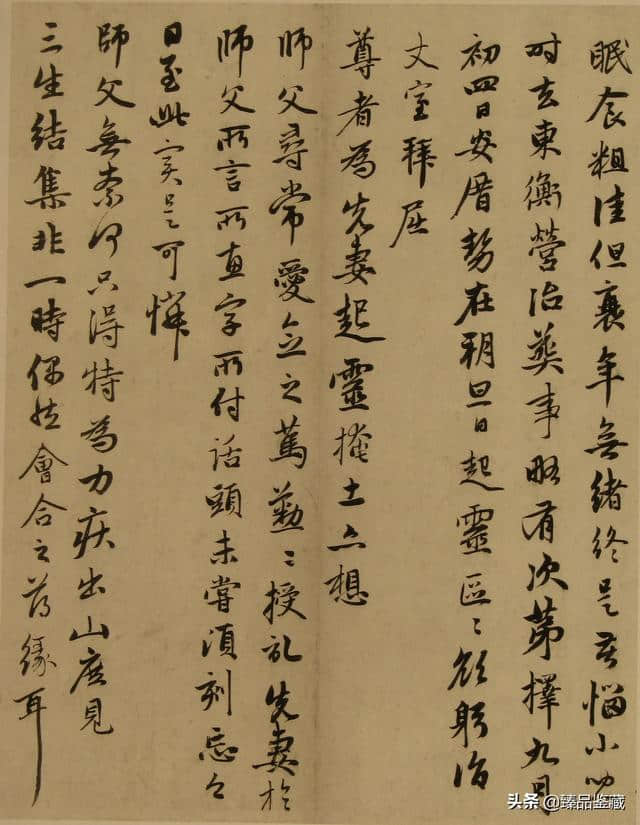 眠食粗佳但衰年無緒終是苦惱小兒
時去東衡營治葬事略有次第擇九月
初四日安厝勢在朔旦日起靈區〻欲躬詣
丈室拜屈
尊者為先妻起靈掩土亦想
師父尋常愛念之篤懃〻授記先妻於
師父所言所惠字所付話頭未嘗須刻忘
日至此實是可憐
師父無奈何只得特為力疾出山庶見
三生結集非一時偶然會合之薄緣耳
头条 @臻品鉴藏